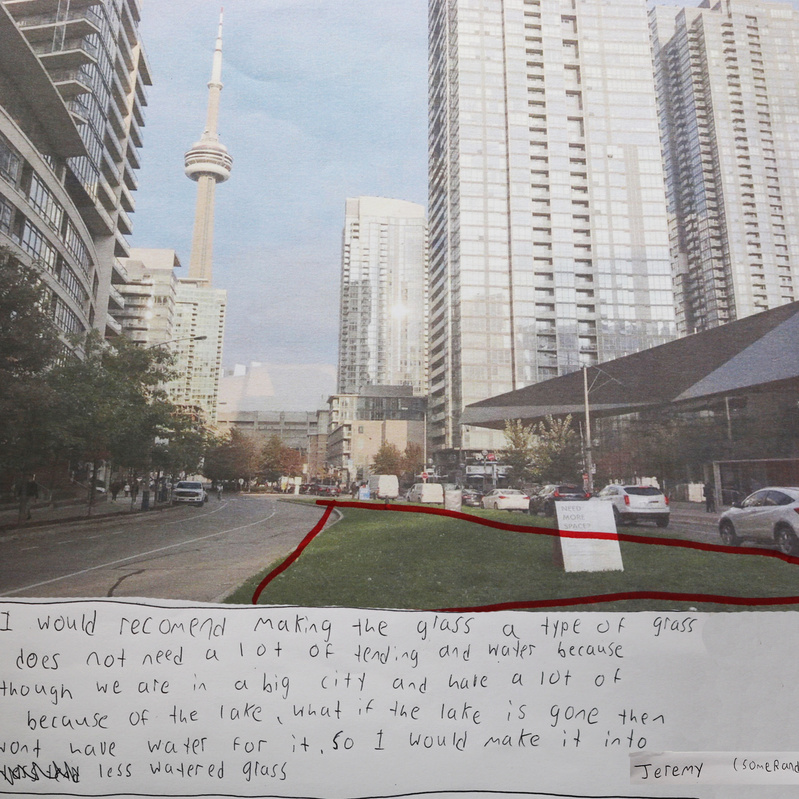 NEED
MORE
SPACE?
I would recomend making the glass a type of grass
does not need a lot of tending and water because
though we are in a big city and have a lot of
because of the lake, what if the lake is gone then
wont have water for it. So I would make it into
less watered glass
Jeremy (SOMERAND